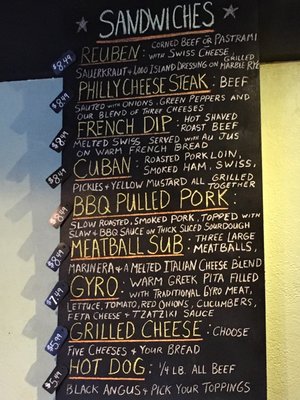 SANDWICHES
REUBEN: CORNED BEEF OR PASTRAMI
WITH SWISS CHEESE,
SAUERKRAUT & 1000 ISLAND DRESSING ON GRILLED MARBLE RYE
$8.49
PHILLY CHEESE STEAK: BEEF
SAUTÉD WITH ONIONS, GREEN PEPPERS AND
OUR BLEND OF THREE CHEESES
$8.49
FRENCH DIP: HOT SHAVED
ROAST BEEF
MELTED SWISS SERVED WITH AU JUS
ON WARM FRENCH BREAD
$8.49
CUBAN: ROASTED PORK LOIN,
SMOKED HAM, SWISS,
PICKLES & YELLOW MUSTARD ALL GRILLED TOGETHER
$8.49
BBQ PULLED PORK:
SLOW ROASTED, SMOKED PORK, TOPPED WITH
SLAW & BBQ SAUCE ON THICK SLICED SOURDOUGH
$8.49
MEATBALL SUB: THREE LARGE
MEATBALLS,
MARINERA & A MELTED ITALIAN CHEESE BLEND
$8.49
GYRO: WARM GREEK PITA FILLED
WITH TRADITIONAL GYRO MEAT,
LETTUCE, TOMATO, RED ONIONS, CUCUMBERS,
FETA CHEESE & TZATZIKI SAUCE
$7.49
GRILLED CHEESE: CHOOSE
FIVE CHEESES & YOUR BREAD
$5.99
HOT DOG: 1/4 LB. ALL BEEF
BLACK ANGUS & PICK YOUR TOPPINGS
$5.49